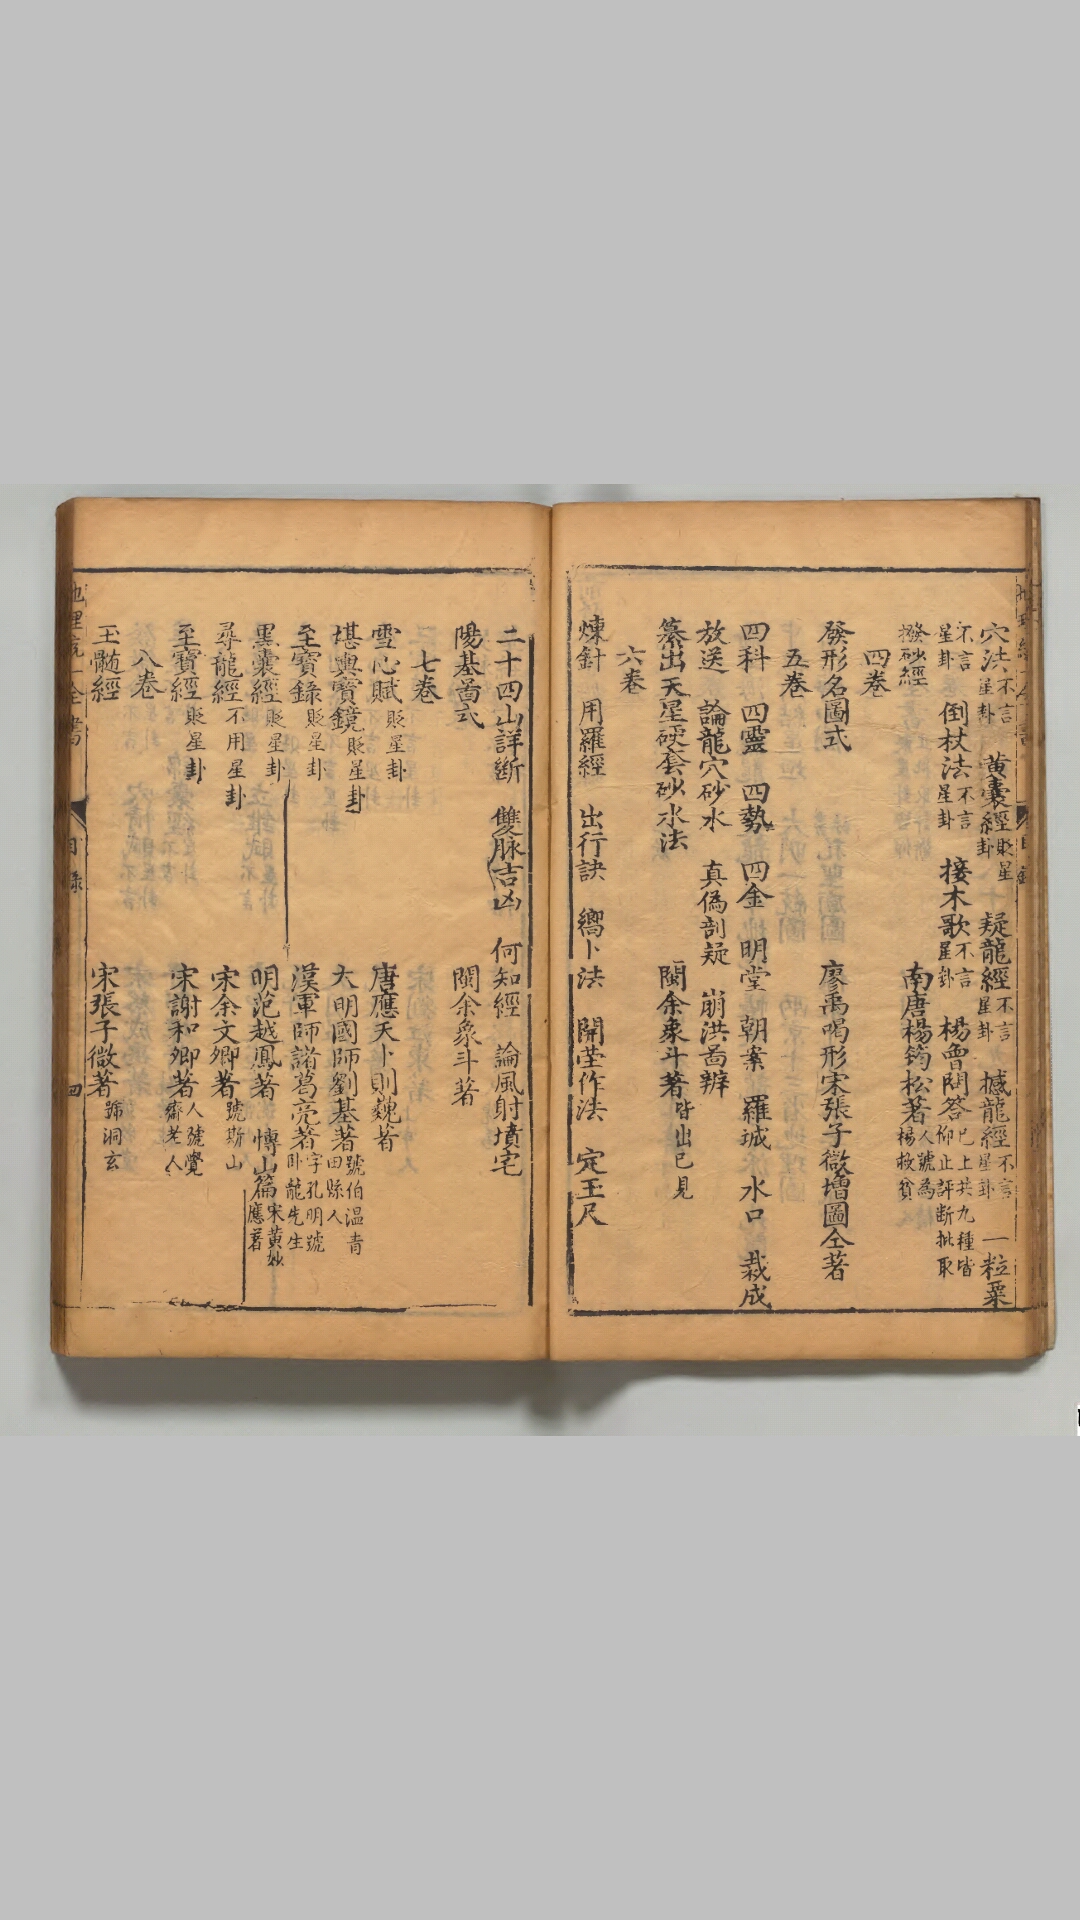 穴法不言星卦 黃囊經貶星卦 疑龍經不言星卦 撼龍經不言星卦 一粒粟
不言星卦 倒杖法不言星卦 接木歌不言星卦 楊曾問答已上共九種皆仰止評斷批取
撥砂經 南唐楊筠松著人號為楊救貧
四卷
發形名圖式 廖禹喝形宋張子微增圖仝著
五卷
四科 四靈 四勢 四金 明堂 朝案 羅城 水口 裁成
放送 論龍穴砂水 真偽剖疑 崩洪啚辨
纂出天星硬套砂水法 閩余象斗著皆出已見
六卷
煉針 用羅經 出行訣 嚮卜法 開塋作法 定玉尺
二十四山詳斷 雙脉吉凶 何知經 論風射墳宅
陽基啚式 閩余象斗著
七卷
雪心賦貶星卦 唐應天卜則巍著
堪輿寶鏡貶星卦 大明國師劉基著號伯溫青田縣人
至寶錄貶星卦 漢軍師諸葛亮著字孔明號卧龍先生
黑囊經貶星卦 明范越鳳著 愽山篇宋黃妙應著
尋龍經不用星卦 宋余文卿著號斯山
至寶經貶星卦 宋謝和卿著人號覺齋老人
八卷
玉髓經 宋張子微著號洞玄
地理統一全書
目錄
四